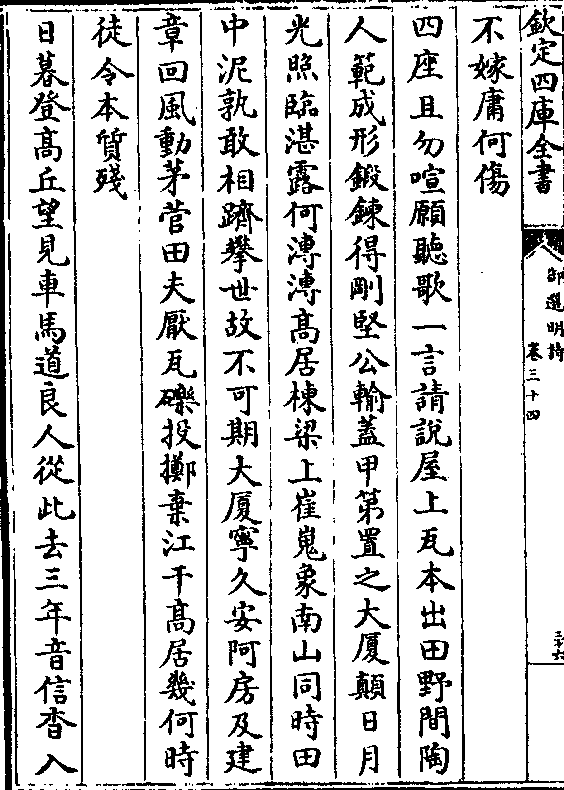 欽定四庫全書
御選明詩
卷三十四
三十六
不嫁庸何傷
四座且勿喧願聽歌一言請說屋上瓦本出田野間陶
人範成形鍛鍊得剛堅公輸蓋甲第置之大厦顛日月
光照臨湛露何漙漙髙居棟梁上崔嵬象南山同時田
中泥孰敢相躋攀世故不可期大厦寧久安阿房及建
章回風動茅菅田夫厭瓦礫投擲棄江干髙居幾何時
徒令本質殘
日暮登髙丘望見車馬道良人從此去三年音信杳入